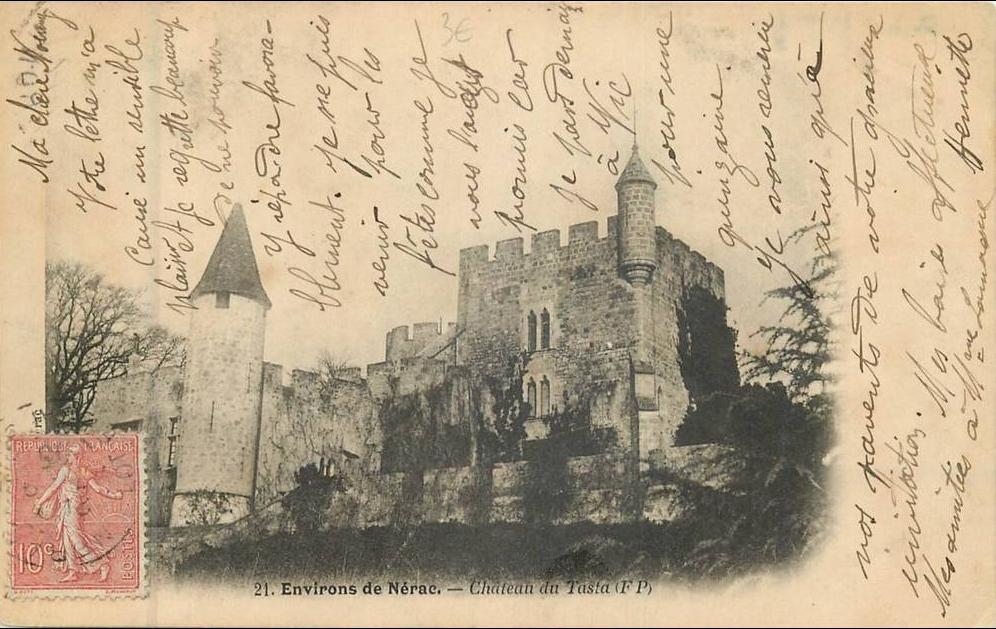 3€
Ma chère
Votre lettre m'a
Causé un sensible
plaisir et je regrette beaucoup
de ne pouvoir
y répondre favora-
blement. Je ne puis
venir pour les
fêtes comme je
vous l'avais
promis car
je pars demain
à Vic
pour une
quinzaine.
Je vous remercie
ainsi qu'à
vos parents de votre gracieuse
invitation. Mes baisers affectueux
Mes amitiés à Mme
REPUBLIQUE FRANÇAISE
10c POSTES
21. Environs de Nérac. — Château du Tasta (F P)